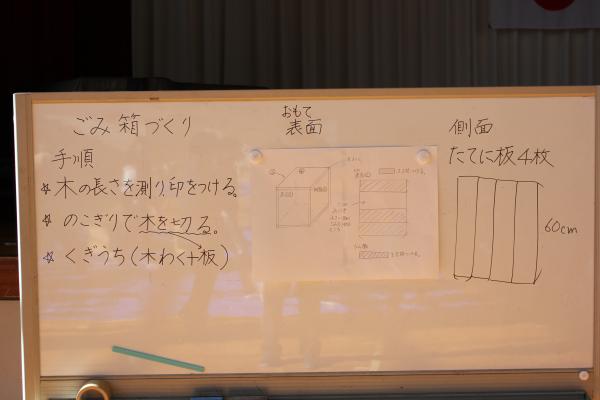 ごみ箱づくり
手順
☆木の長さを測り、印をつける。
☆のこぎりで木を切る。
☆くぎうち(木わく+板)
おもて
表面
側面
たてに板4枚
60cm